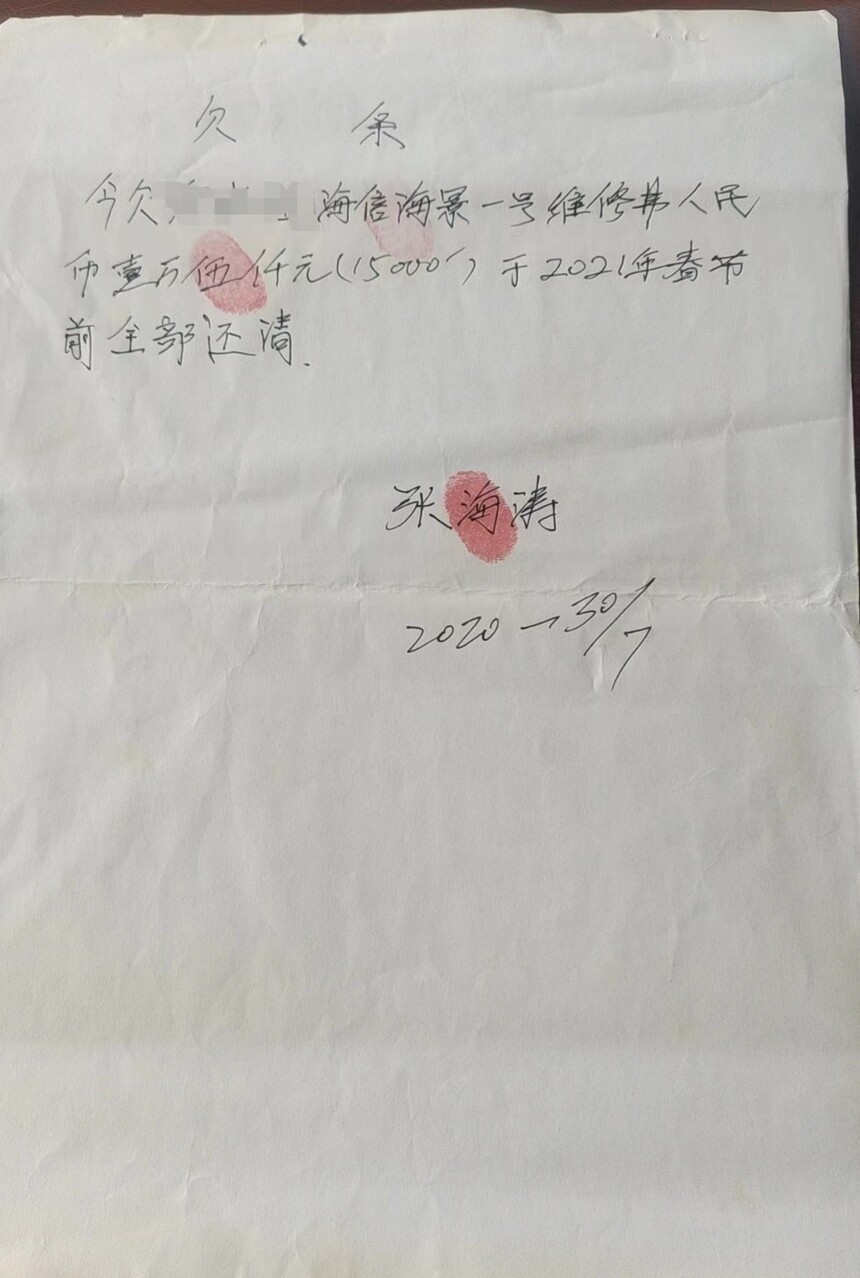 欠 条
今欠 海信海景一号维修费人民
币壹万伍仟元(15000′)于2021年春节
前全部还清.
张海涛
2020-30/7